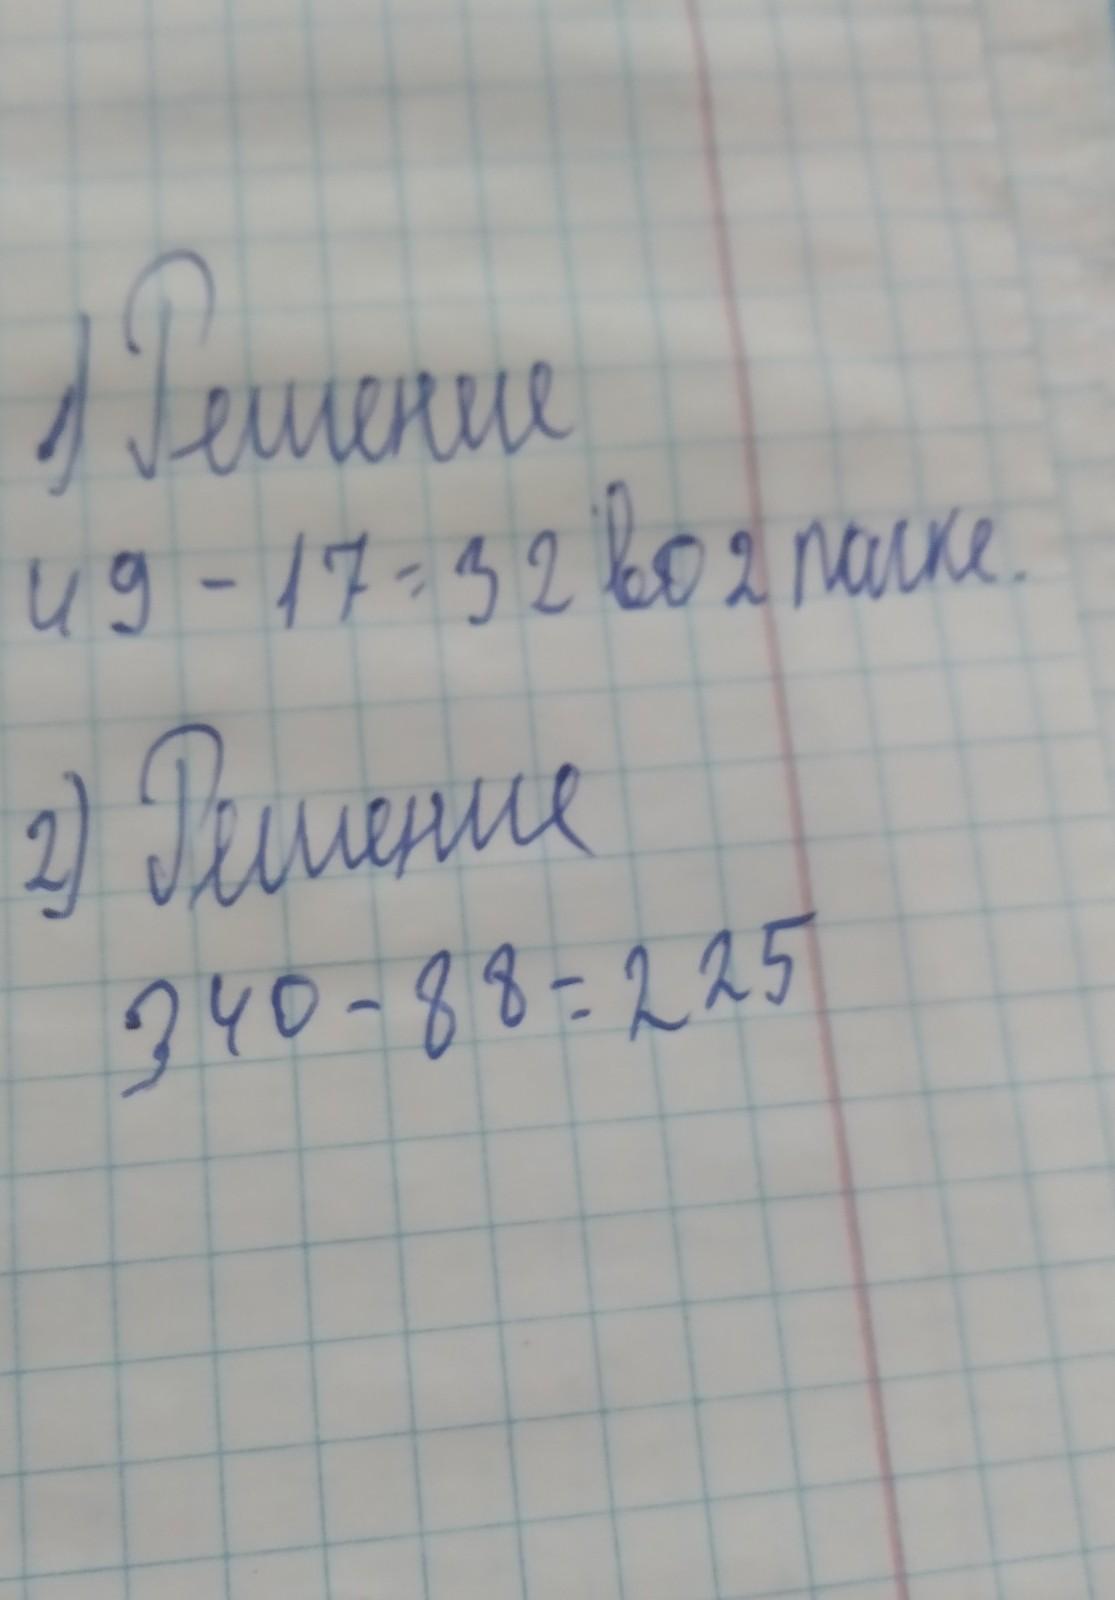 1) Решение
49 - 17 = 32 во 2 палке.
2) Решение
340 - 88 = 225